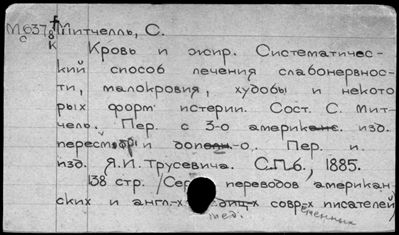 М637 f Митчелль, С.
с 8 к
Кровь и жир. Систематичес-
кий способ лечения слабонервнос-
ти, малокровия, худобы и некото
рых форм истерии. Сост. С. Мит-
чель. Пер. с 3-о американс. изд.
пересмотр и дополн-о. Пер. и
изд. Я.И. Трусевича. С.П.б., 1885.
138 стр. /Сер переводов американ-
ских и англ-х медиц-х соврех писателей/
мед. еменных